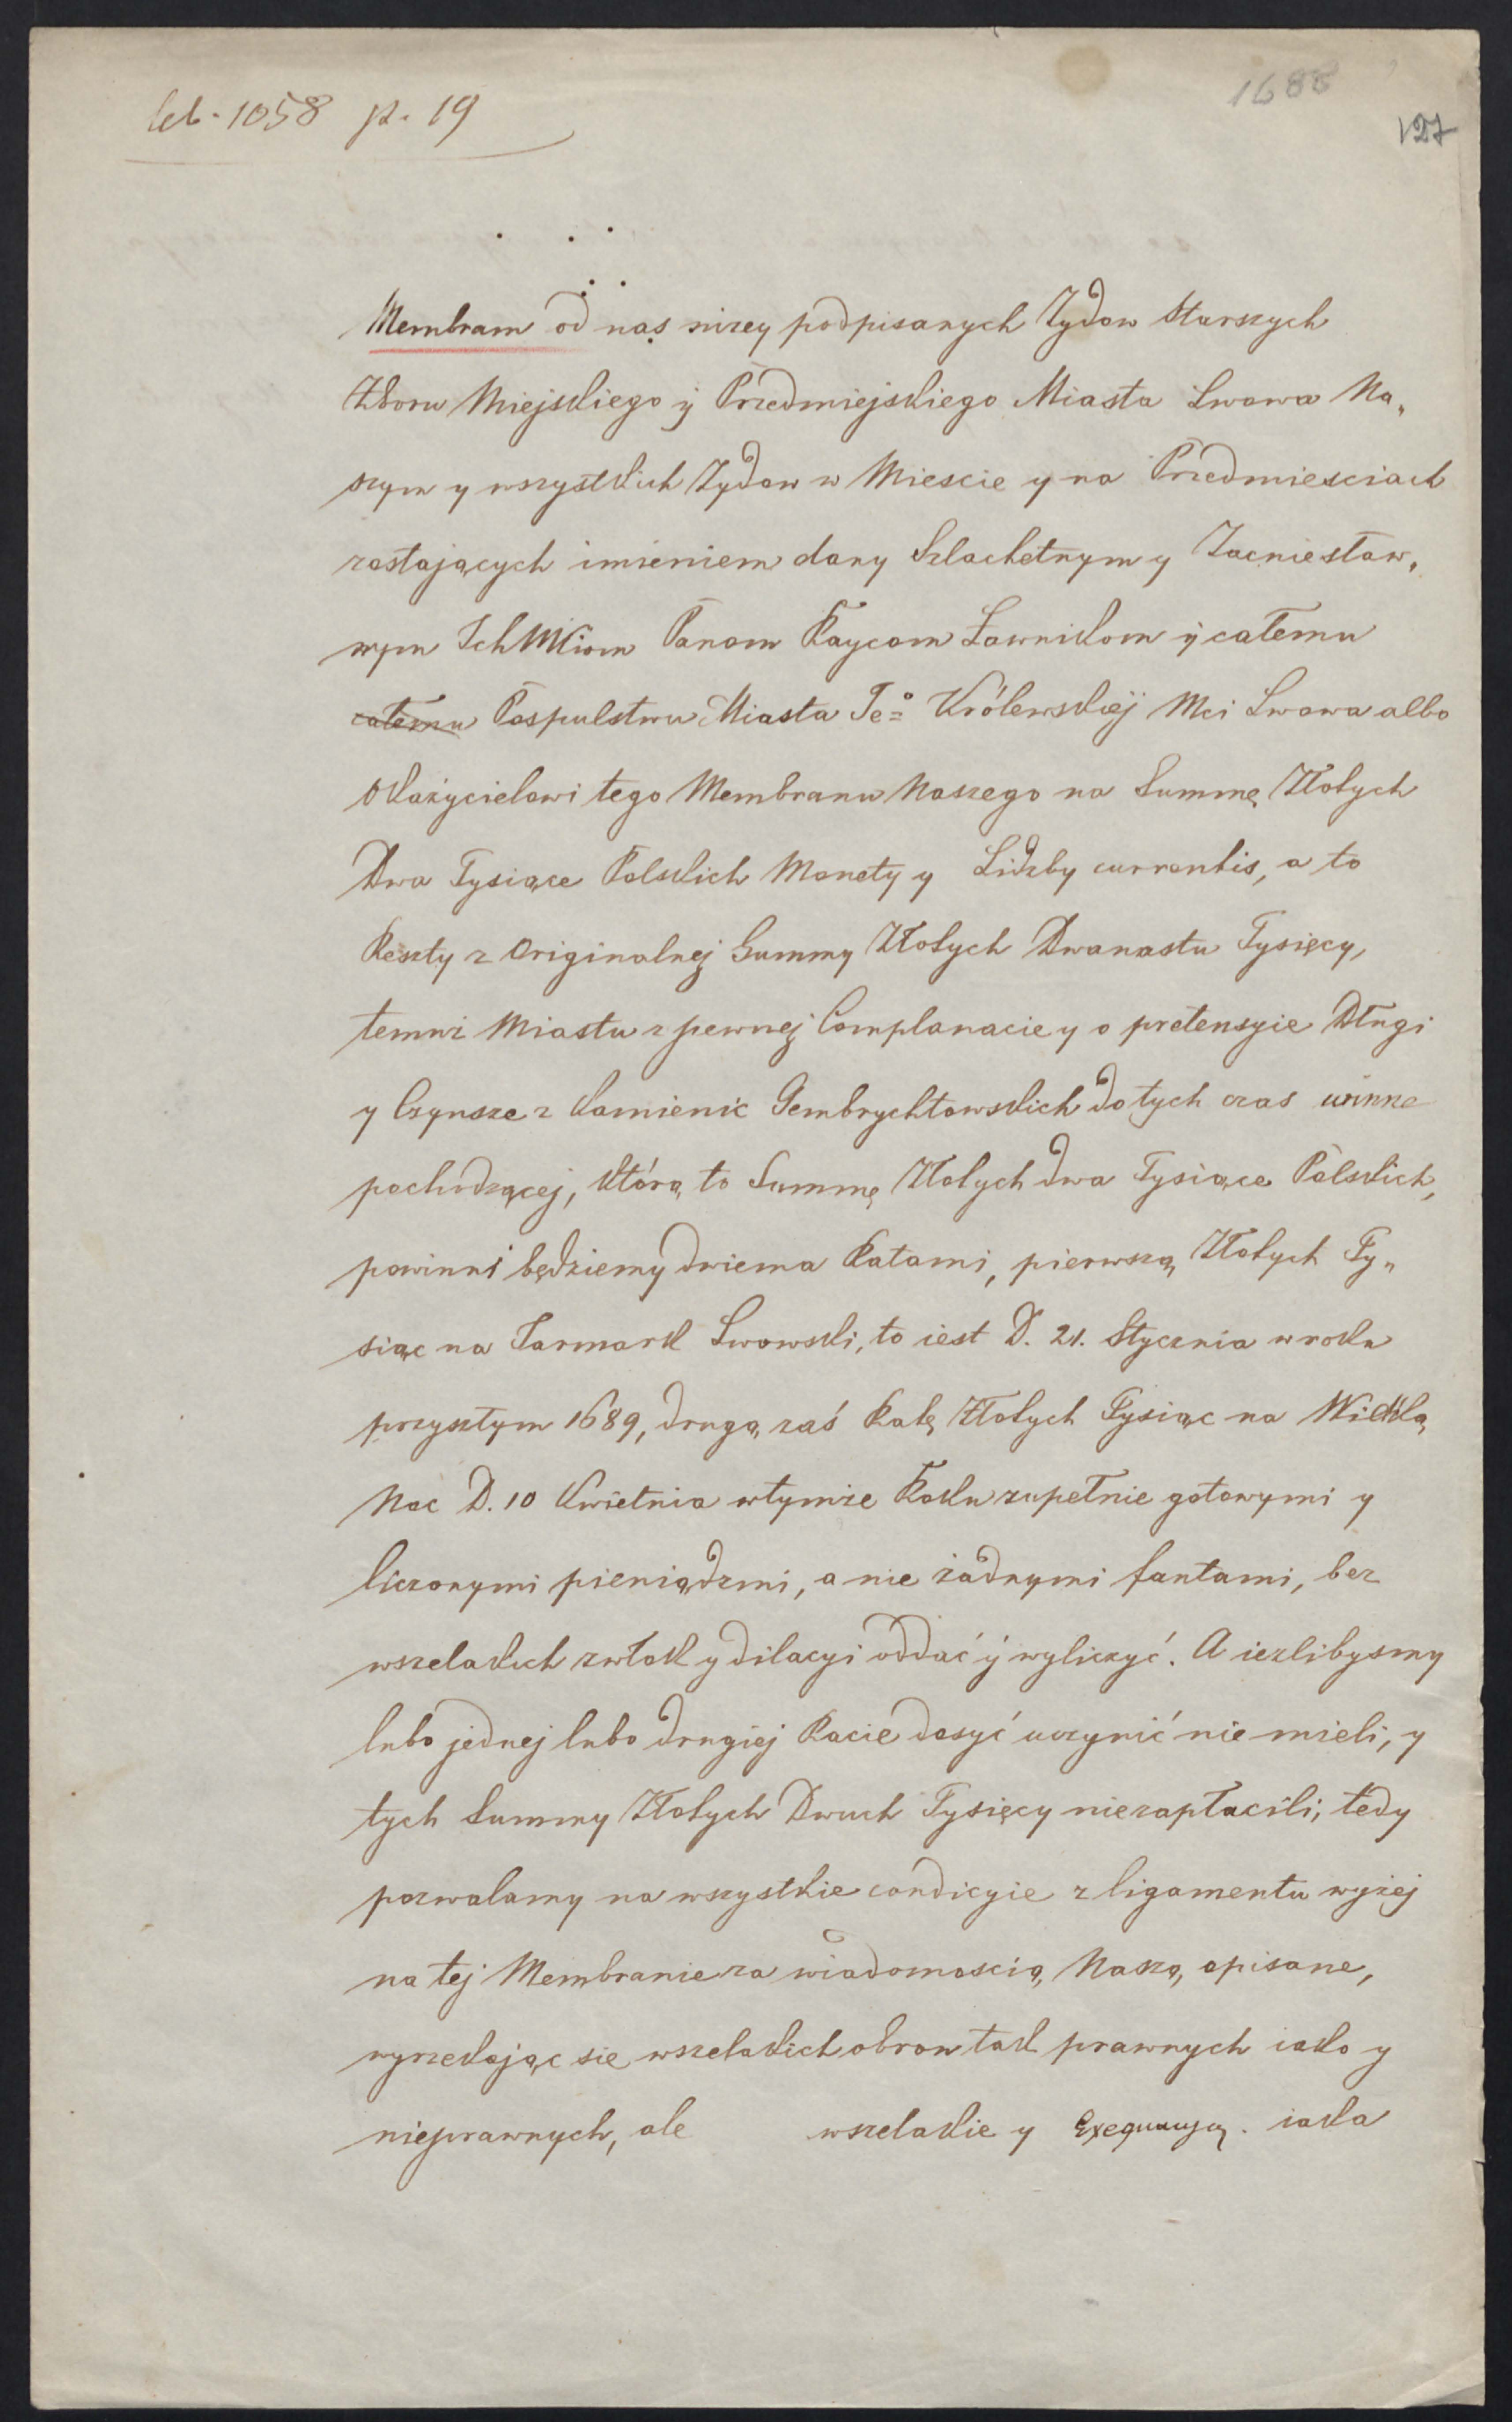 1688
lib. 1058 p. 19
127
Membram od nas nizey podpisanych Zydow Starszych
Zboru Miejskiego ÿ Przedmiejskiego Miasta Lwowa Na„
szym y wszystkich Zydow w Miescie y na Przedmiesciach
zostających imieniem dany Szlachetnym y Zacnie sław„
nym IchMciom Panom Raycom Ławnikom ÿ całemu
całemu Pospulstwu Miasta Je° Królewskiej Mci Lwowa albo
Okazycielowi tego Membranu Naszego na Summę Złotych
Dwa Tysiące Polskich Monety y Lidzby currentis, a to
Reszty z Originalnej Summy Złotych Dwanastu Tysięcy,
temuż Miastu z pewnej Complanaciey o pretensyie Długi
y Czynsze z kamienic Gembrychtowskich do tych czas winne
pochodzącej, którą to Summę Złotych dwa Tysiące Polskich,
powinni będziemy dwiema Ratami, pierwszą Złotych Ty„
siąc na Jarmark Lwowski, to iest D. 21. Stycznia w roku
przyszłym 1689, drugą zaś Ratę Złotych Tysiąc na Wielką
Noc D. 10 Kwietnia w tymże Roku zupełnie gotowymi y
liczonymi pieniądzmi, a nie żadnymi fantami, bez
wszelakich zwłok y dilacyi oddać ÿ wyliczyć. A iezlibysmy
lubo jednej lubo drugiej Racie dosyć uczynić nie mieli, y
tych Summy Złotych Dwuch Tysięcy niezapłacili, tedy
pozwalamy na wszystkie condicyie z ligamentu wyżej
na tej Membranie za wiadomoscią Naszą opisane,
wyrzekając sie wszelakich obron tak prawnych iako y
nieprawnych, ale wszelakie y Exequucyą. iaka